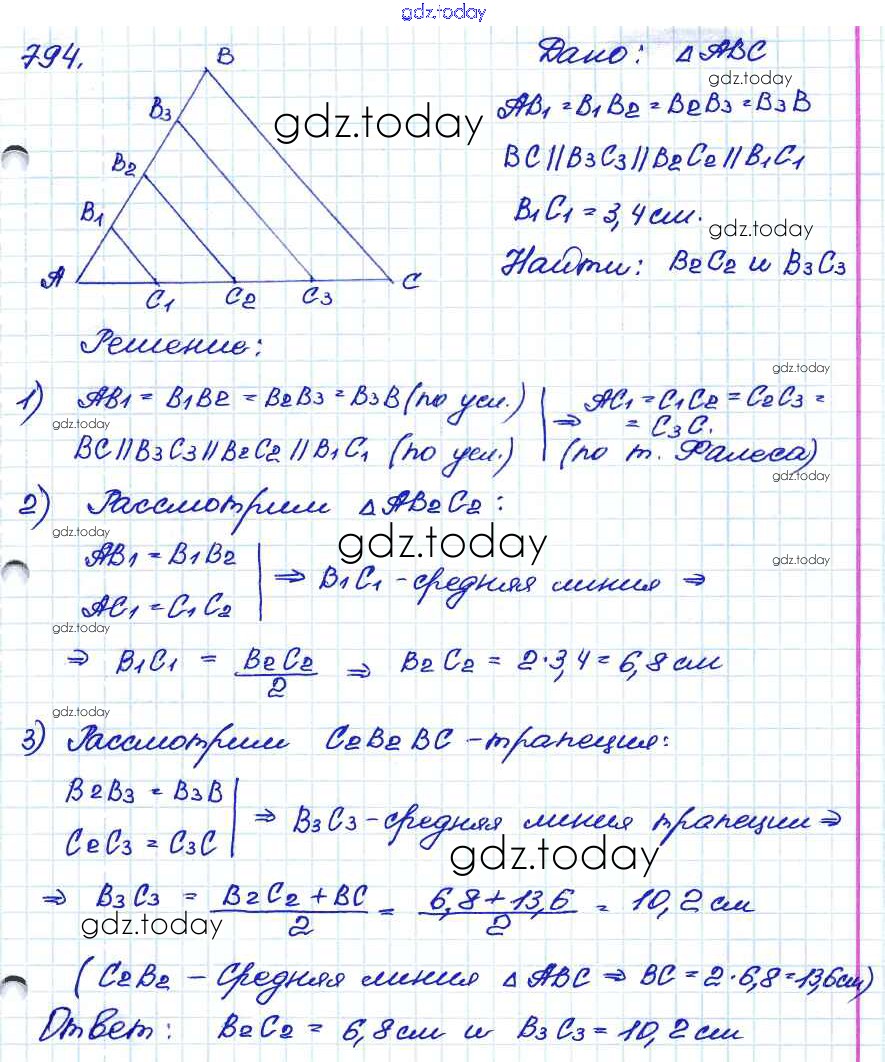 gdz.today
794.
B
B3
B2
B1
A
C1 C2 C3 C
gdz.today
Дано: △ABC
gdz.today
AB1 = B1B2 = B2B3 = B3B
BC || B3C3 || B2C2 || B1C1
B1C1 = 3,4 см.
gdz.today
Найти: B2C2 и B3C3
Решение:
gdz.today
1) AB1 = B1B2 = B2B3 = B3B (по усл.) ⇒ AC1 = C1C2 = C2C3 =
= C3C.
gdz.today
BC || B3C3 || B2C2 || B1C1 (по усл.) (по т. Фалеса)
gdz.today
2) Рассмотрим △AB2C2:
gdz.today
gdz.today
gdz.today
AB1 = B1B2
⇒ B1C1 - средняя линия ⇒
AC1 = C1C2
gdz.today
⇒ B1C1 = B2C2/2 ⇒ B2C2 = 2·3,4 = 6,8 см
gdz.today
3) Рассмотрим C2B2BC - трапеция:
B2B3 = B3B
⇒ B3C3 - средняя линия трапеции ⇒
C2C3 = C3C
gdz.today
⇒ B3C3 = B2C2 + BC/2 = 6,8 + 13,6/2 = 10,2 см
gdz.today
(C2B2 - средняя линия △ABC ⇒ BC = 2·6,8 = 13,6 см)
Ответ: B2C2 = 6,8 см и B3C3 = 10,2 см